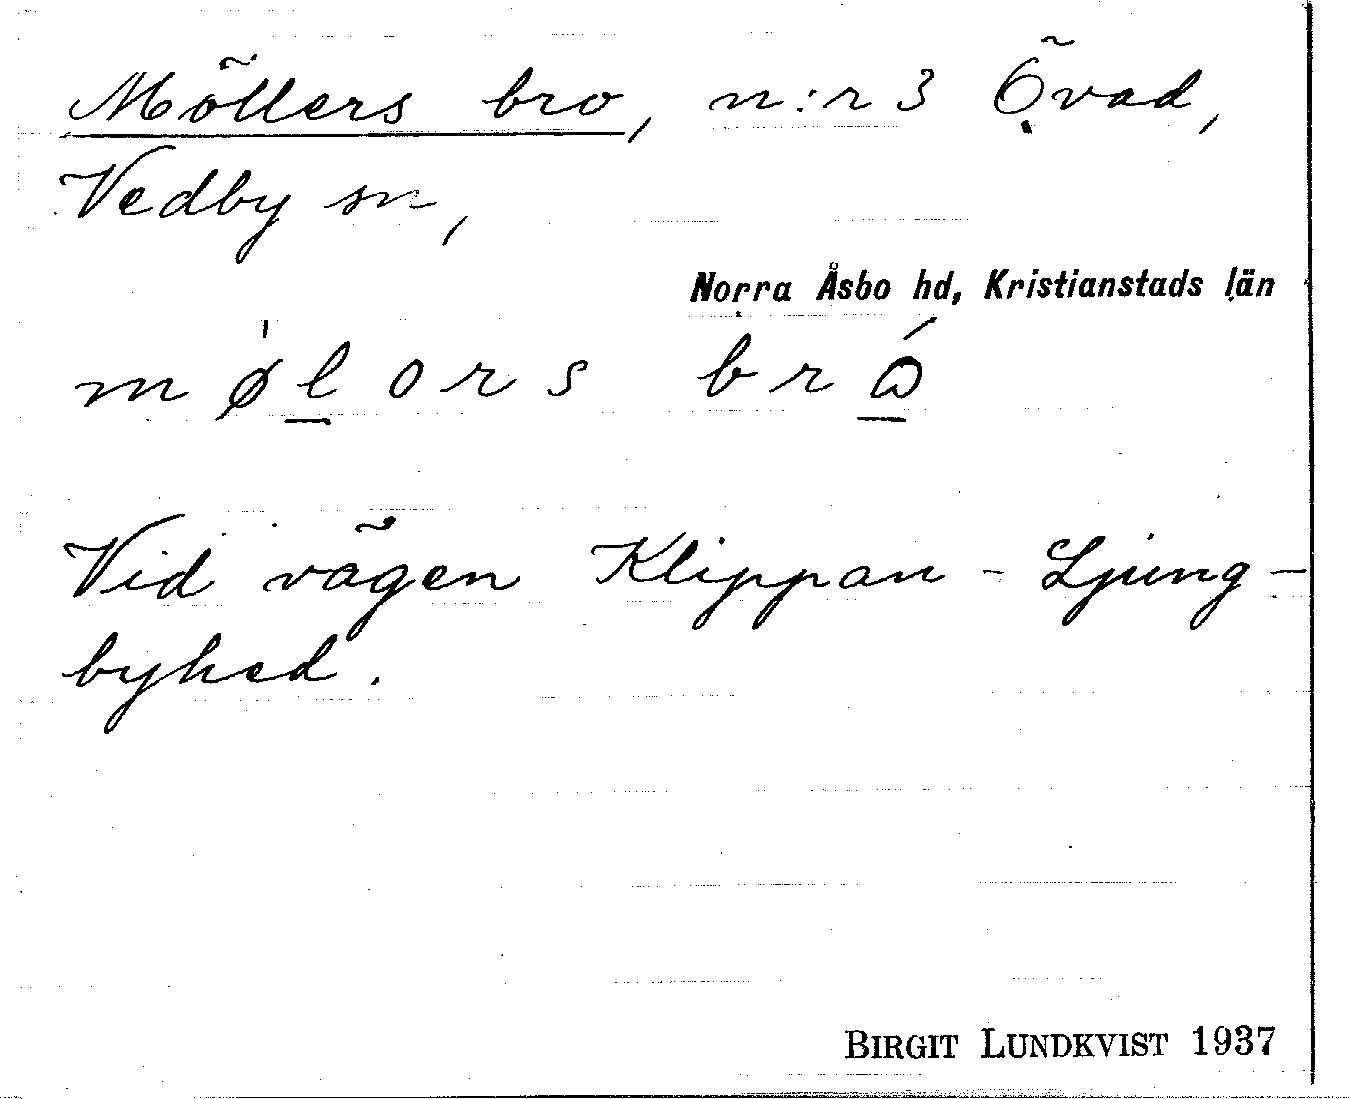 Möllers bro, n:r 3 Övad,
Vedby sn,
Norra Åsbo hd, Kristianstads län
mø̍l̲ors brɷ̲́
Vid vägen Klippan - Ljung-
byhed.
BIRGIT LUNDKVIST 1937